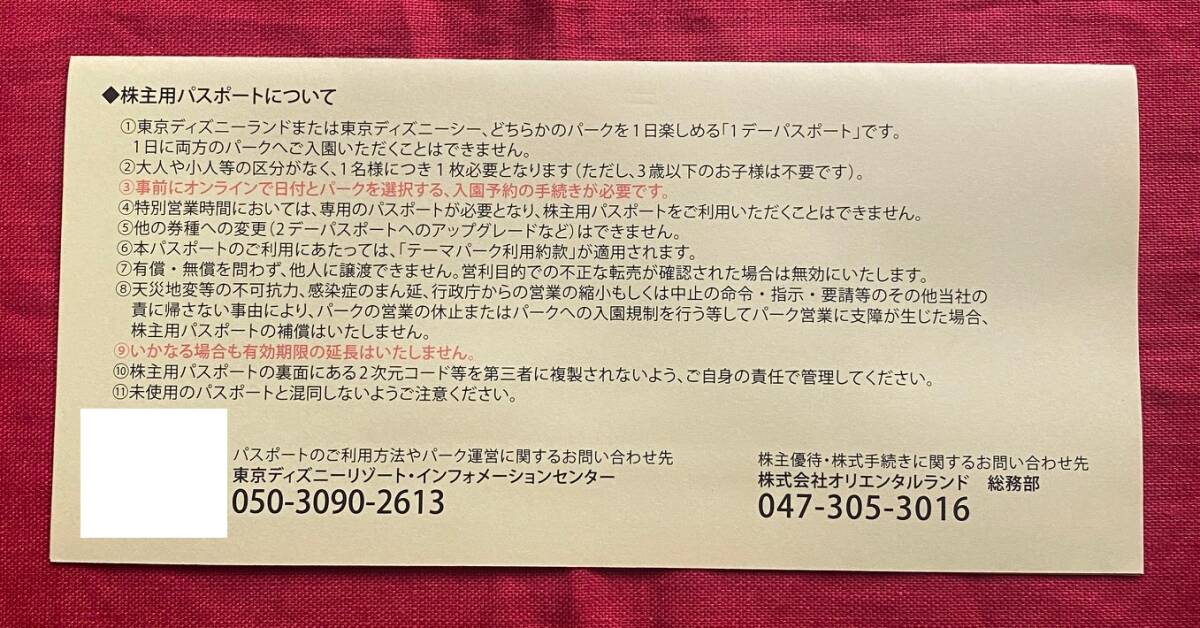 ◆株主用パスポートについて
①東京ディズニーランドまたは東京ディズニーシー、どちらかのパークを1日楽しめる「1デーパスポート」です。
1日に両方のパークへご入園いただくことはできません。
②大人や小人等の区分がなく、1名様につき1枚必要となります(ただし、3歳以下のお子様は不要です)。
③事前にオンラインで日付とパークを選択する、入園予約の手続きが必要です。
④特別営業時間においては、専用のパスポートが必要となり、株主用パスポートをご利用いただくことはできません。
⑤他の券種への変更(2デーパスポートへのアップグレードなど)はできません。
⑥本パスポートのご利用にあたっては、「テーマパーク利用約款」が適用されます。
⑦有償・無償を問わず、他人に譲渡できません。営利目的での不正な転売が確認された場合は無効にいたします。
⑧天災地変等の不可抗力、感染症のまん延、行政庁からの営業の縮小もしくは中止の命令・指示・要請等のその他当社の
責に帰さない事由により、パークの営業の休止またはパークへの入園規制を行う等してパーク営業に支障が生じた場合、
株主用パスポートの補償はいたしません。
⑨いかなる場合も有効期限の延長はいたしません。
⑩株主用パスポートの裏面にある2次元コード等を第三者に複製されないよう、ご自身の責任で管理してください。
⑪未使用のパスポートと混同しないようご注意ください。
パスポートのご利用方法やパーク運営に関するお問い合わせ先
東京ディズニーリゾート・インフォメーションセンター
050-3090-2613
株主優待・株式手続きに関するお問い合わせ先
株式会社オリエンタルランド 総務部
047-305-3016